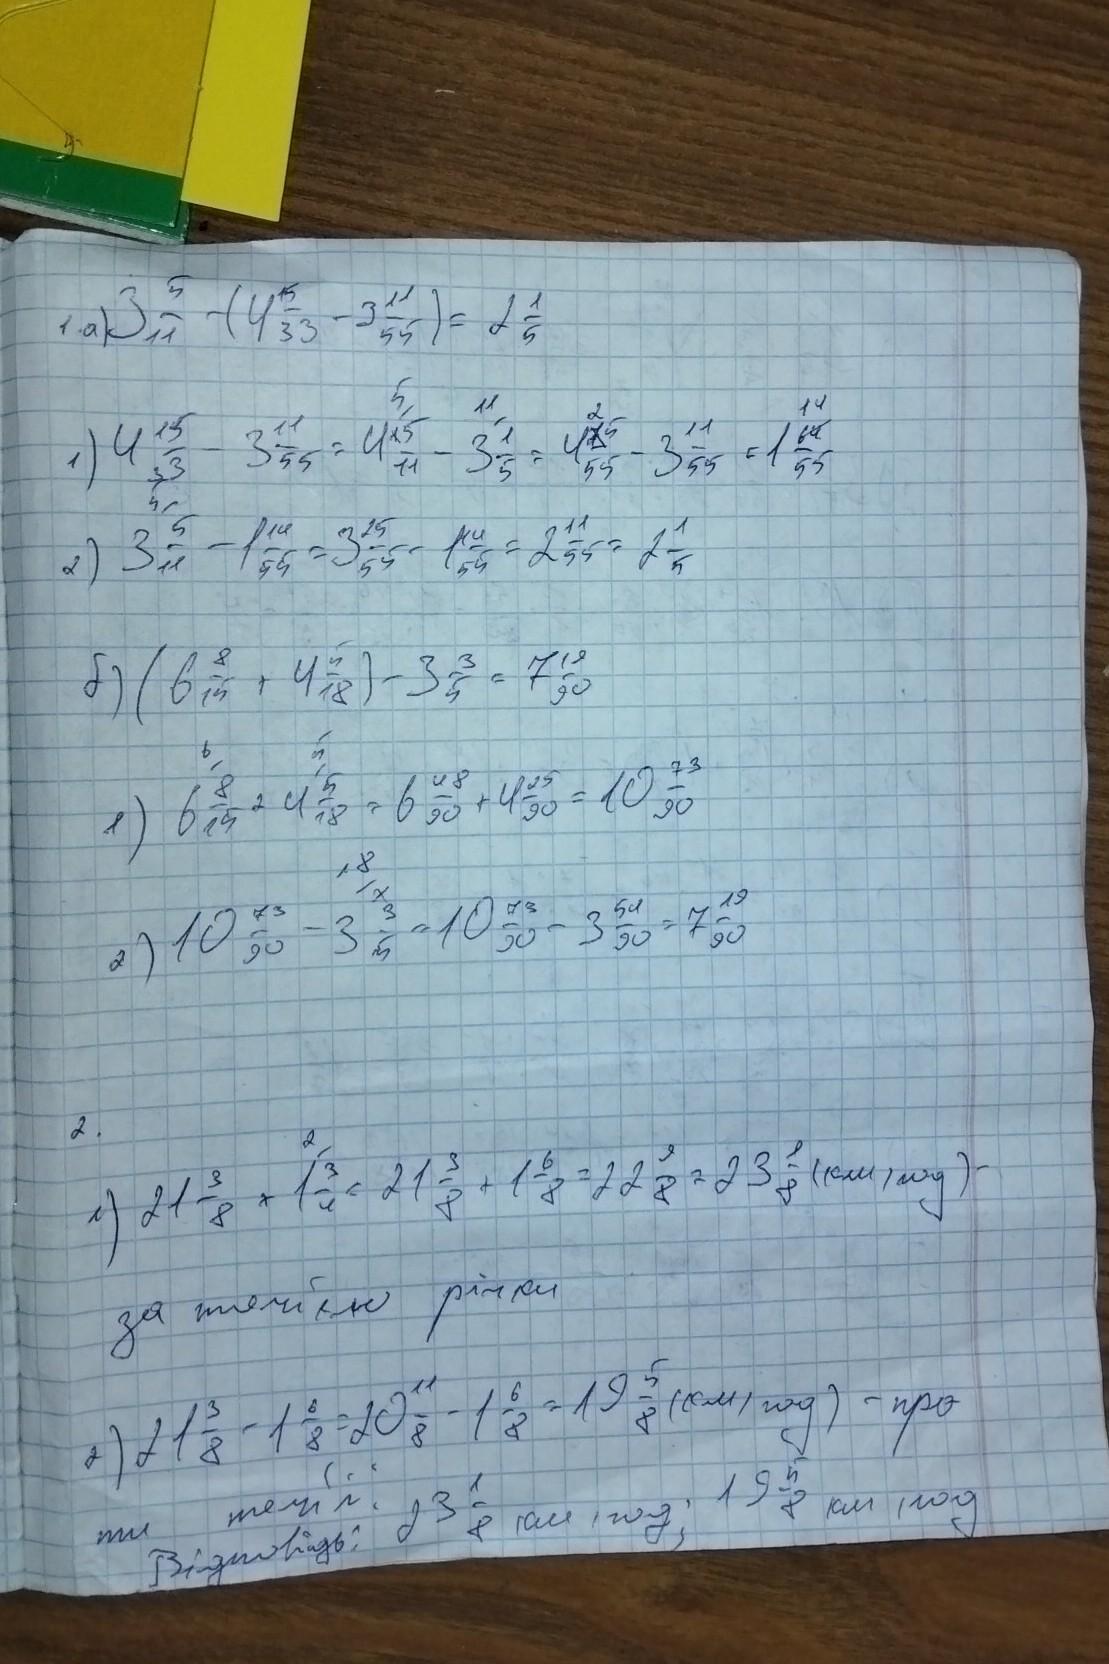 1.а) 3 5/11 - (4 15/33 - 3 11/55) = 2 1/5
1) 4 15/33 - 3 11/55 = 4 5/11 - 3 1/5 = 4 25/55 - 3 11/55 = 1 14/55
2) 3 5/11 - 1 14/55 = 3 25/55 - 1 14/55 = 2 11/55 = 2 1/5
б) (6 8/15 + 4 5/18) - 3 3/5 = 7 19/90
1) 6 8/15 + 4 5/18 = 6 48/90 + 4 25/90 = 10 73/90
2) 10 73/90 - 3 3/5 = 10 73/90 - 3 54/90 = 7 19/90
2.
1) 21 3/8 + 1 3/4 = 21 3/8 + 1 6/8 = 22 9/8 = 23 1/8 (км/год) -
за течією річки
2) 21 3/8 - 1 6/8 = 20 11/8 - 1 6/8 = 19 5/8 (км/год) - про
ти течії.
Відповідь: 23 1/8 км/год; 19 5/8 км/год